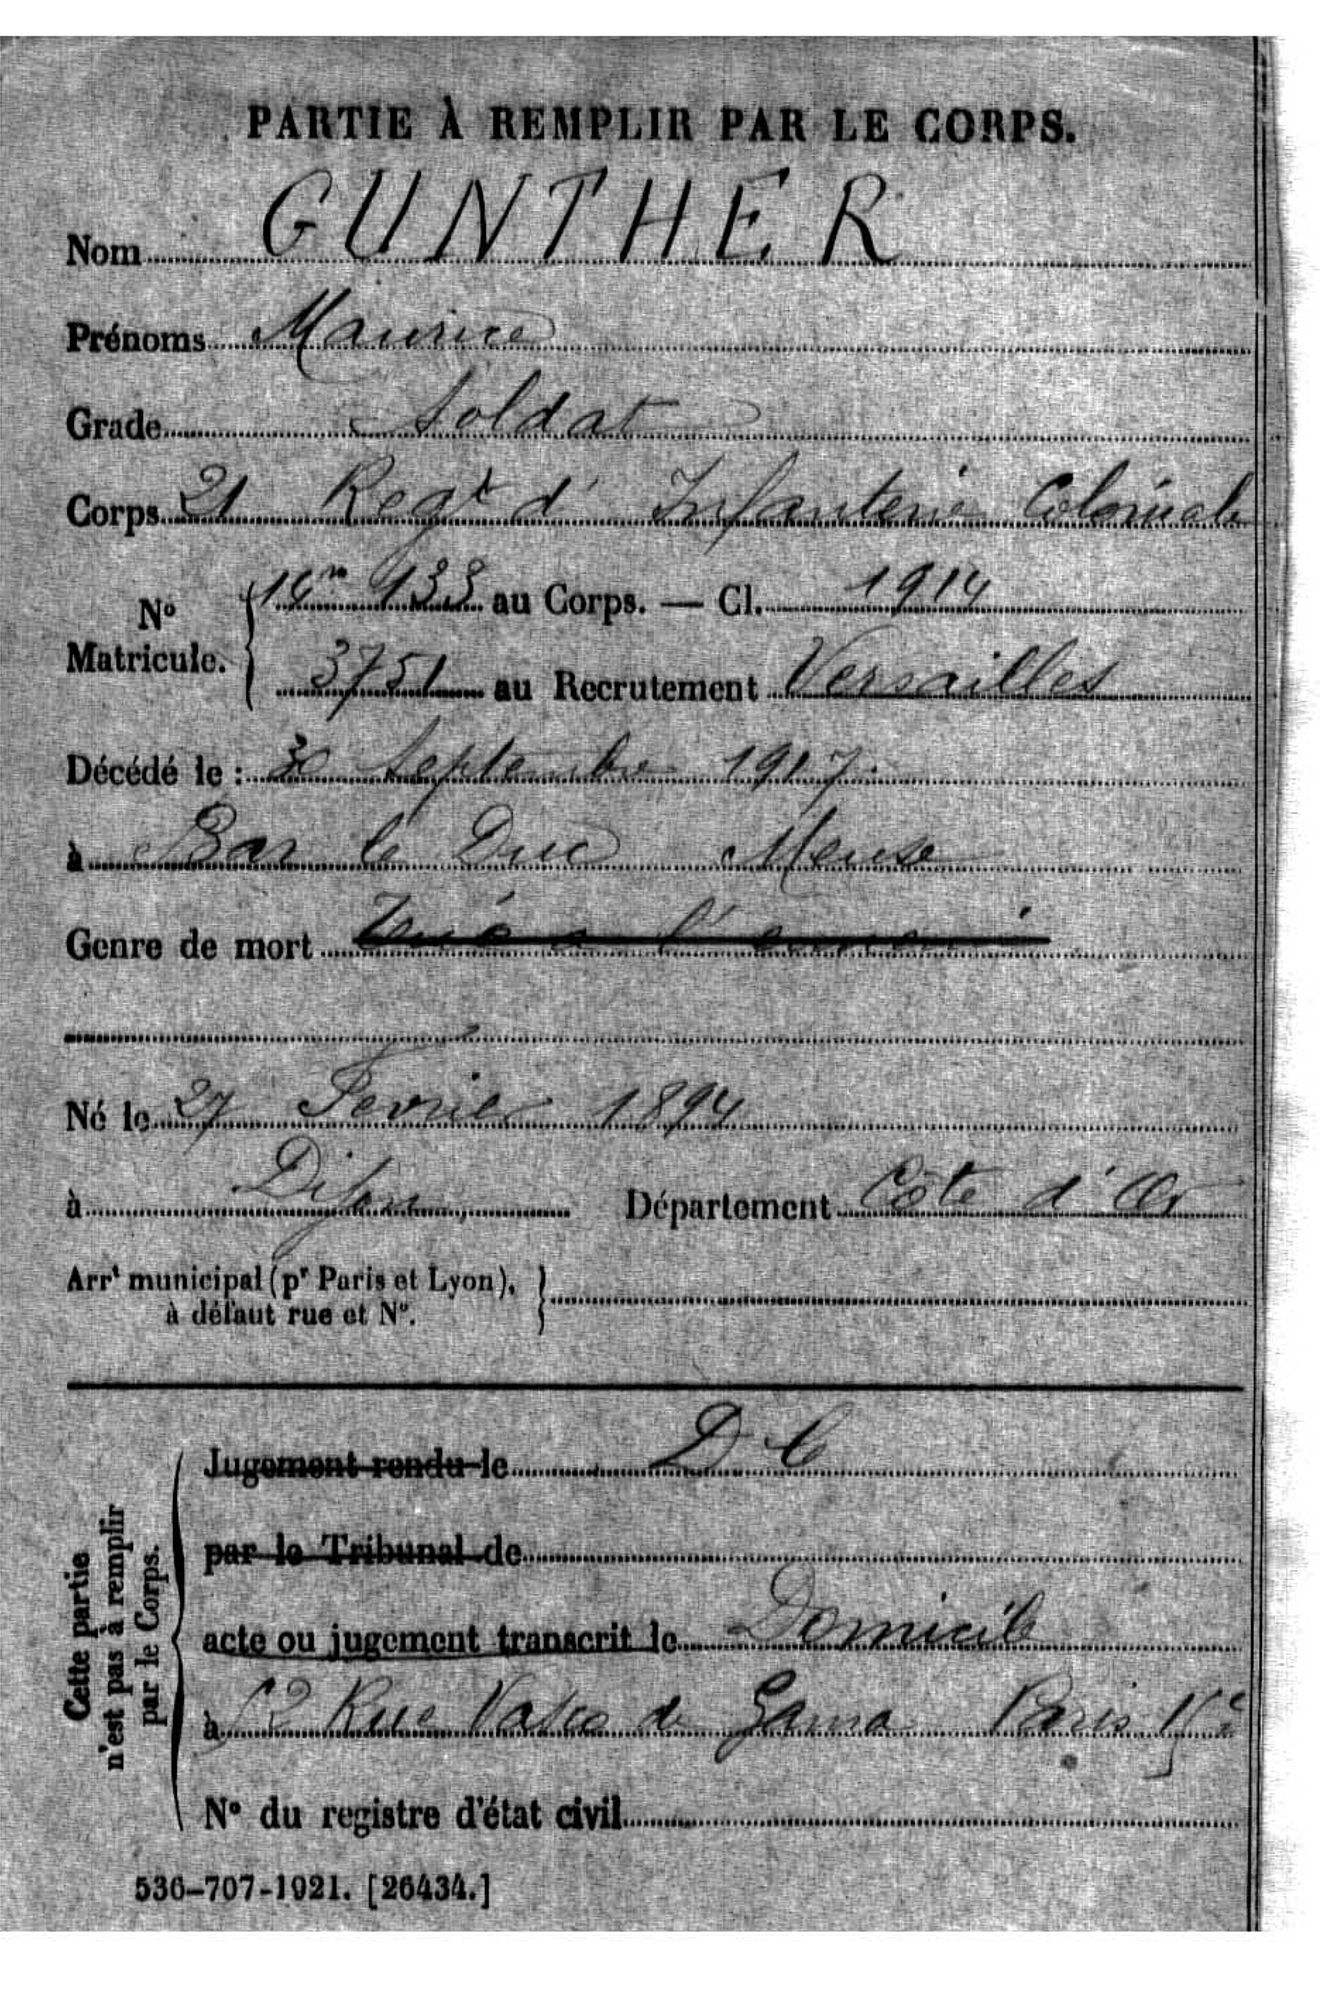 PARTIE À REMPLIR PAR LE CORPS.
Nom GUNTHER
Prénoms Maurice
Grade Soldat
Corps 21 Regt d' Infanterie Coloniale
N° Matricule. 133 au Corps. — Cl. 1914
3751 au Recrutement Versailles
Décédé le : 30 Septembre 1917
à Bar le Duc Meuse
Genre de mort Tué a l'ennemi
Né le 27 Fevrier 1894
à Dijon Département Côte d'Or
Arrt municipal (pr Paris et Lyon),
à défaut rue et N°.
Cette partie
n'est pas à remplir
par le Corps.
Jugement rendu le D C
par le Tribunal de
acte ou jugement transcrit le Domicile
à Rue Vasco de Gama Paris
N° du registre d'état civil
536-707-1921. [26434.]